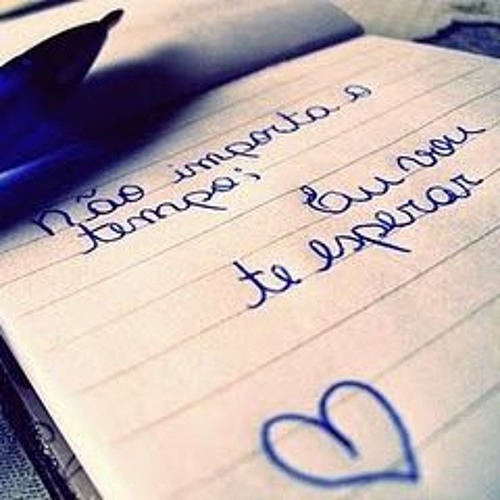 Não importa o
tempo;
Eu vou
te esperar